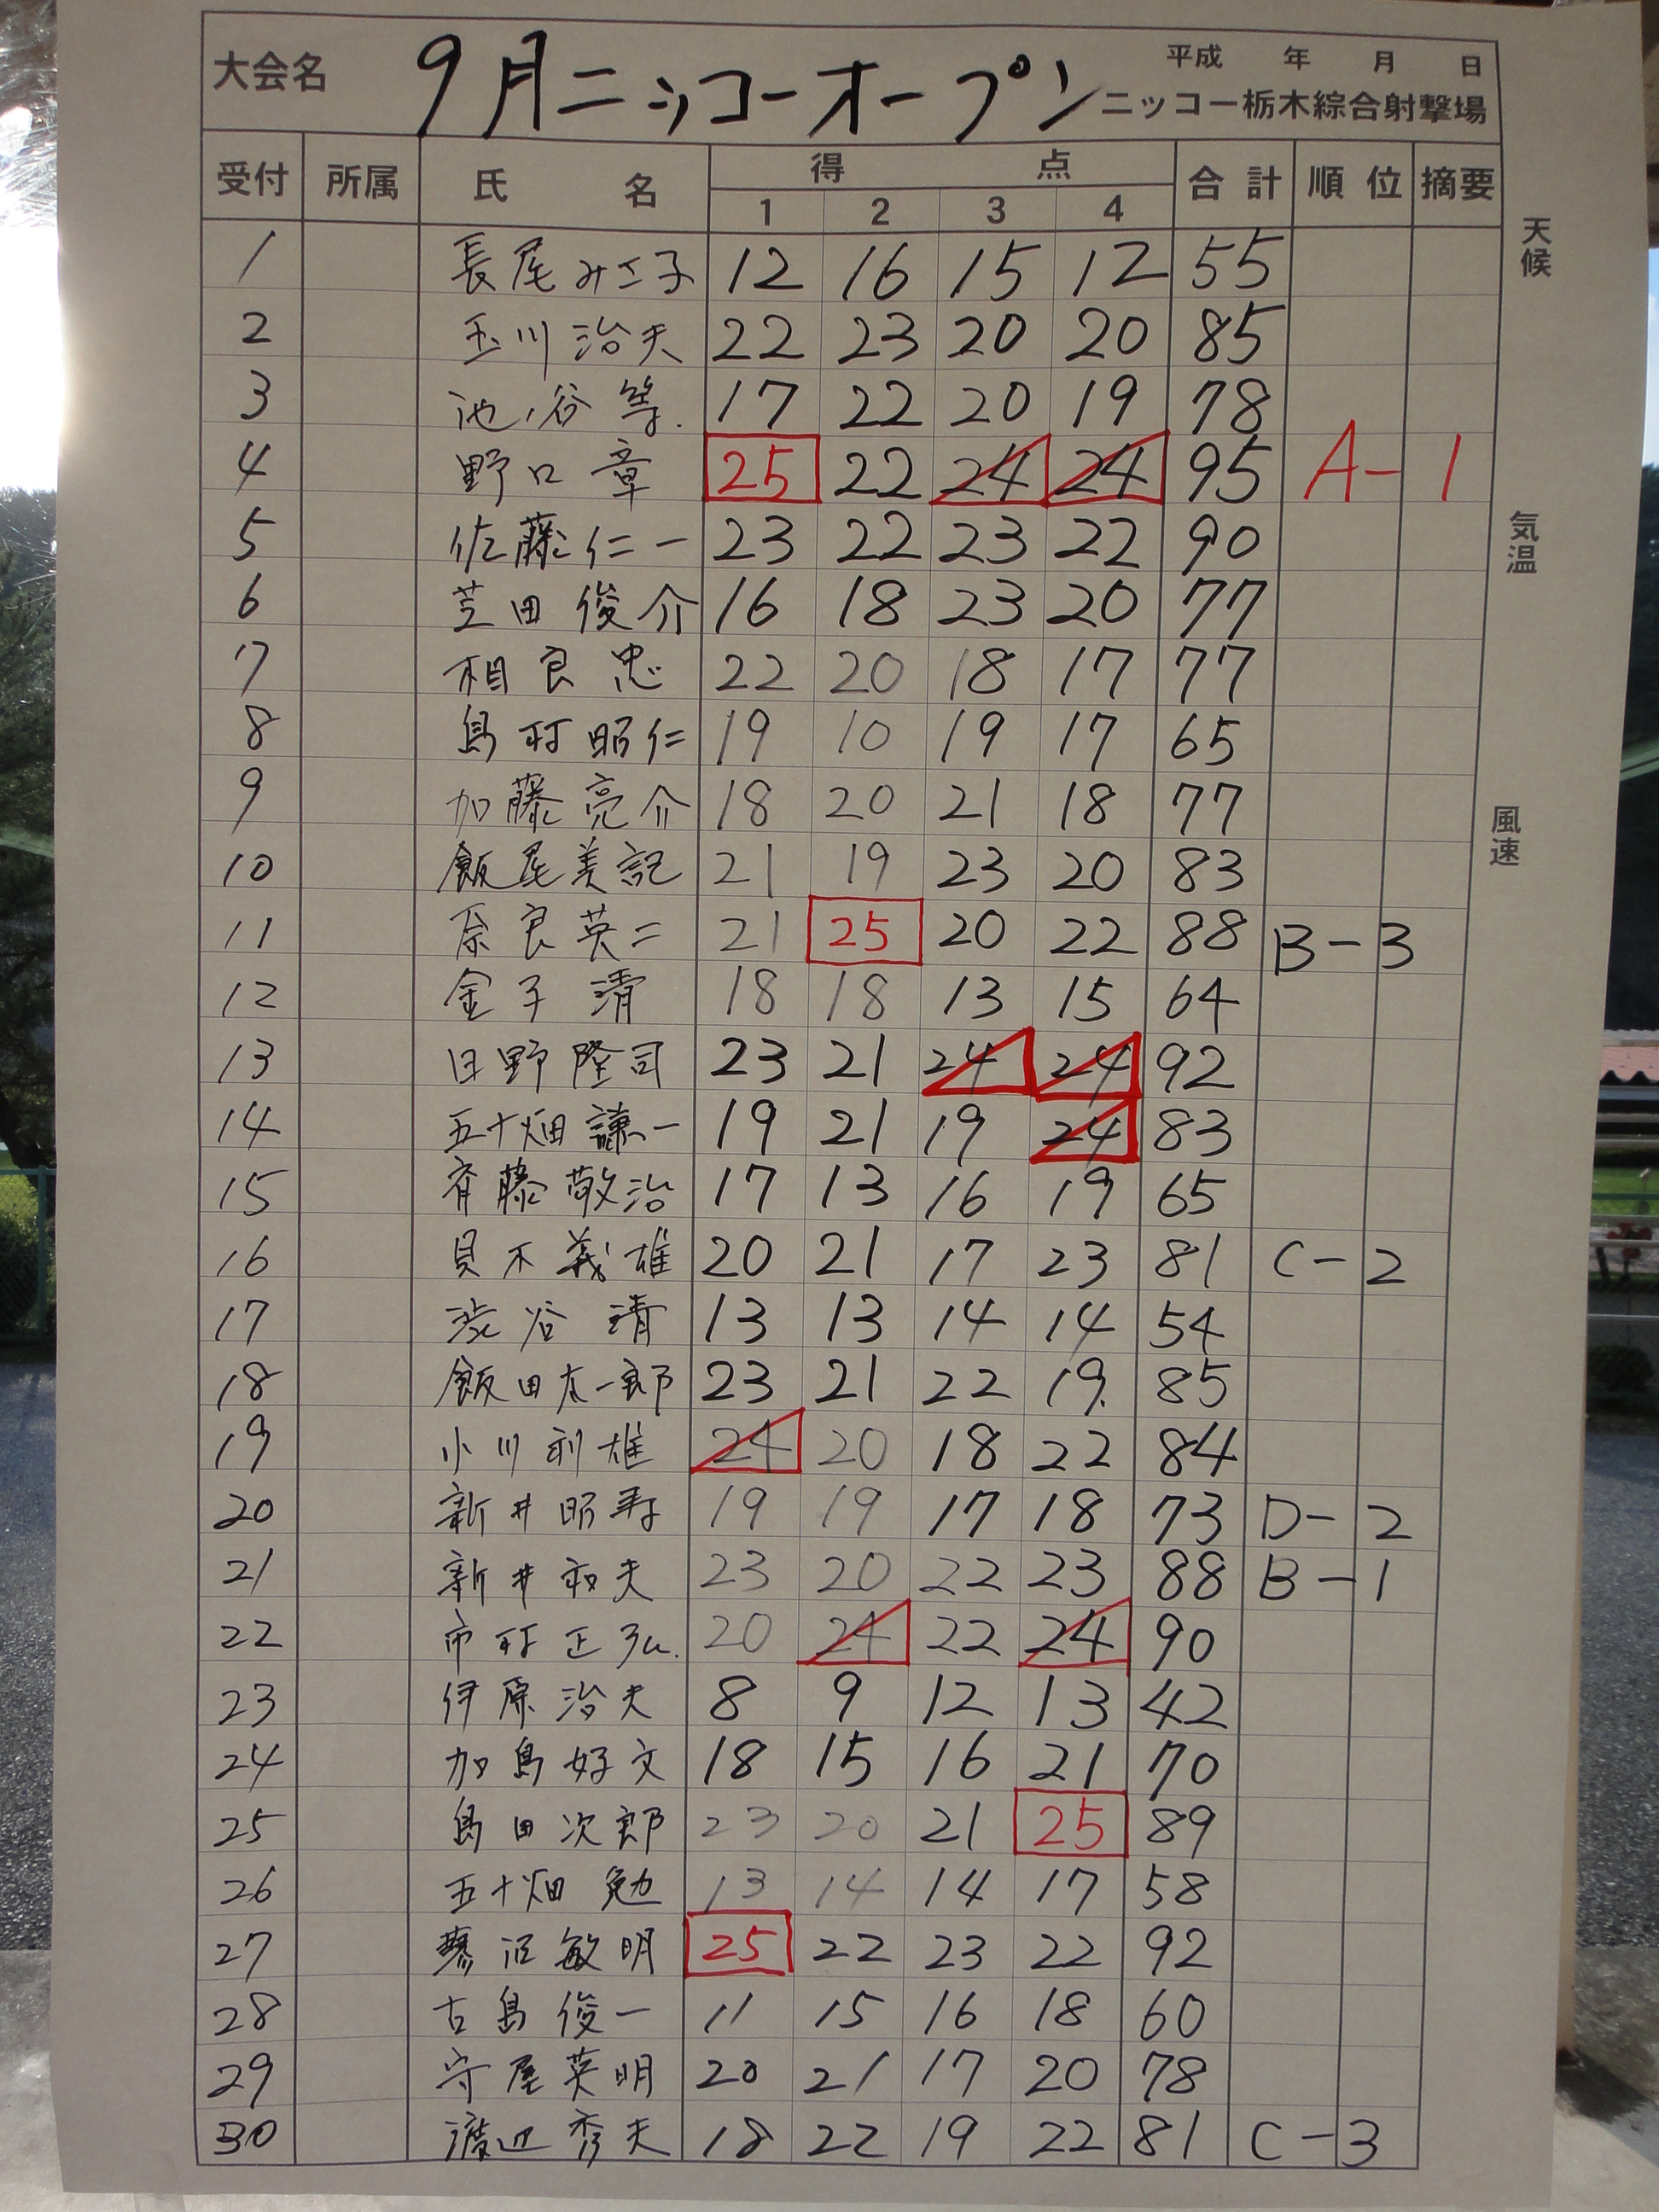 大会名 9月ニッコーオープン 平成 年 月 日
ニッコー栃木綜合射撃場
受付 所属 氏 名 得 点 合計 順位 摘要
1 2 3 4
天候
気温
風速
1 長尾みさ子 12 16 15 12 55
2 玉川治夫 22 23 20 20 85
3 池ノ谷等 17 22 20 19 78
4 野口章 25 22 24 24 95 A-1
5 佐藤仁一 23 22 23 22 90
6 芝田俊介 16 18 23 20 77
7 相良忠 22 20 18 17 77
8 島村昭仁 19 10 19 17 65
9 加藤亮介 18 20 21 18 77
10 飯尾美記 21 19 23 20 83
11 奈良英二 21 25 20 22 88 B-3
12 金子清 18 18 13 15 64
13 日野隆司 23 21 24 24 92
14 五十畑謙一 19 21 19 24 83
15 斉藤敬治 17 13 16 19 65
16 貝木義雄 20 21 17 23 81 C-2
17 渋谷清 13 13 14 14 54
18 飯田太一郎 23 21 22 19 85
19 小川利雄 24 20 18 22 84
20 新井昭寿 19 19 17 18 73 D-2
21 新井和夫 23 20 22 23 88 B-1
22 市村正弘 20 24 22 24 90
23 伊原治夫 8 9 12 13 42
24 加島好文 18 15 16 21 70
25 島田次郎 23 20 21 25 89
26 五十畑勉 13 14 14 17 58
27 沼敏明 25 22 23 22 92
28 古島俊一 11 15 16 18 60
29 守屋英明 20 21 17 20 78
30 渡辺秀夫 18 22 19 22 81 C-3